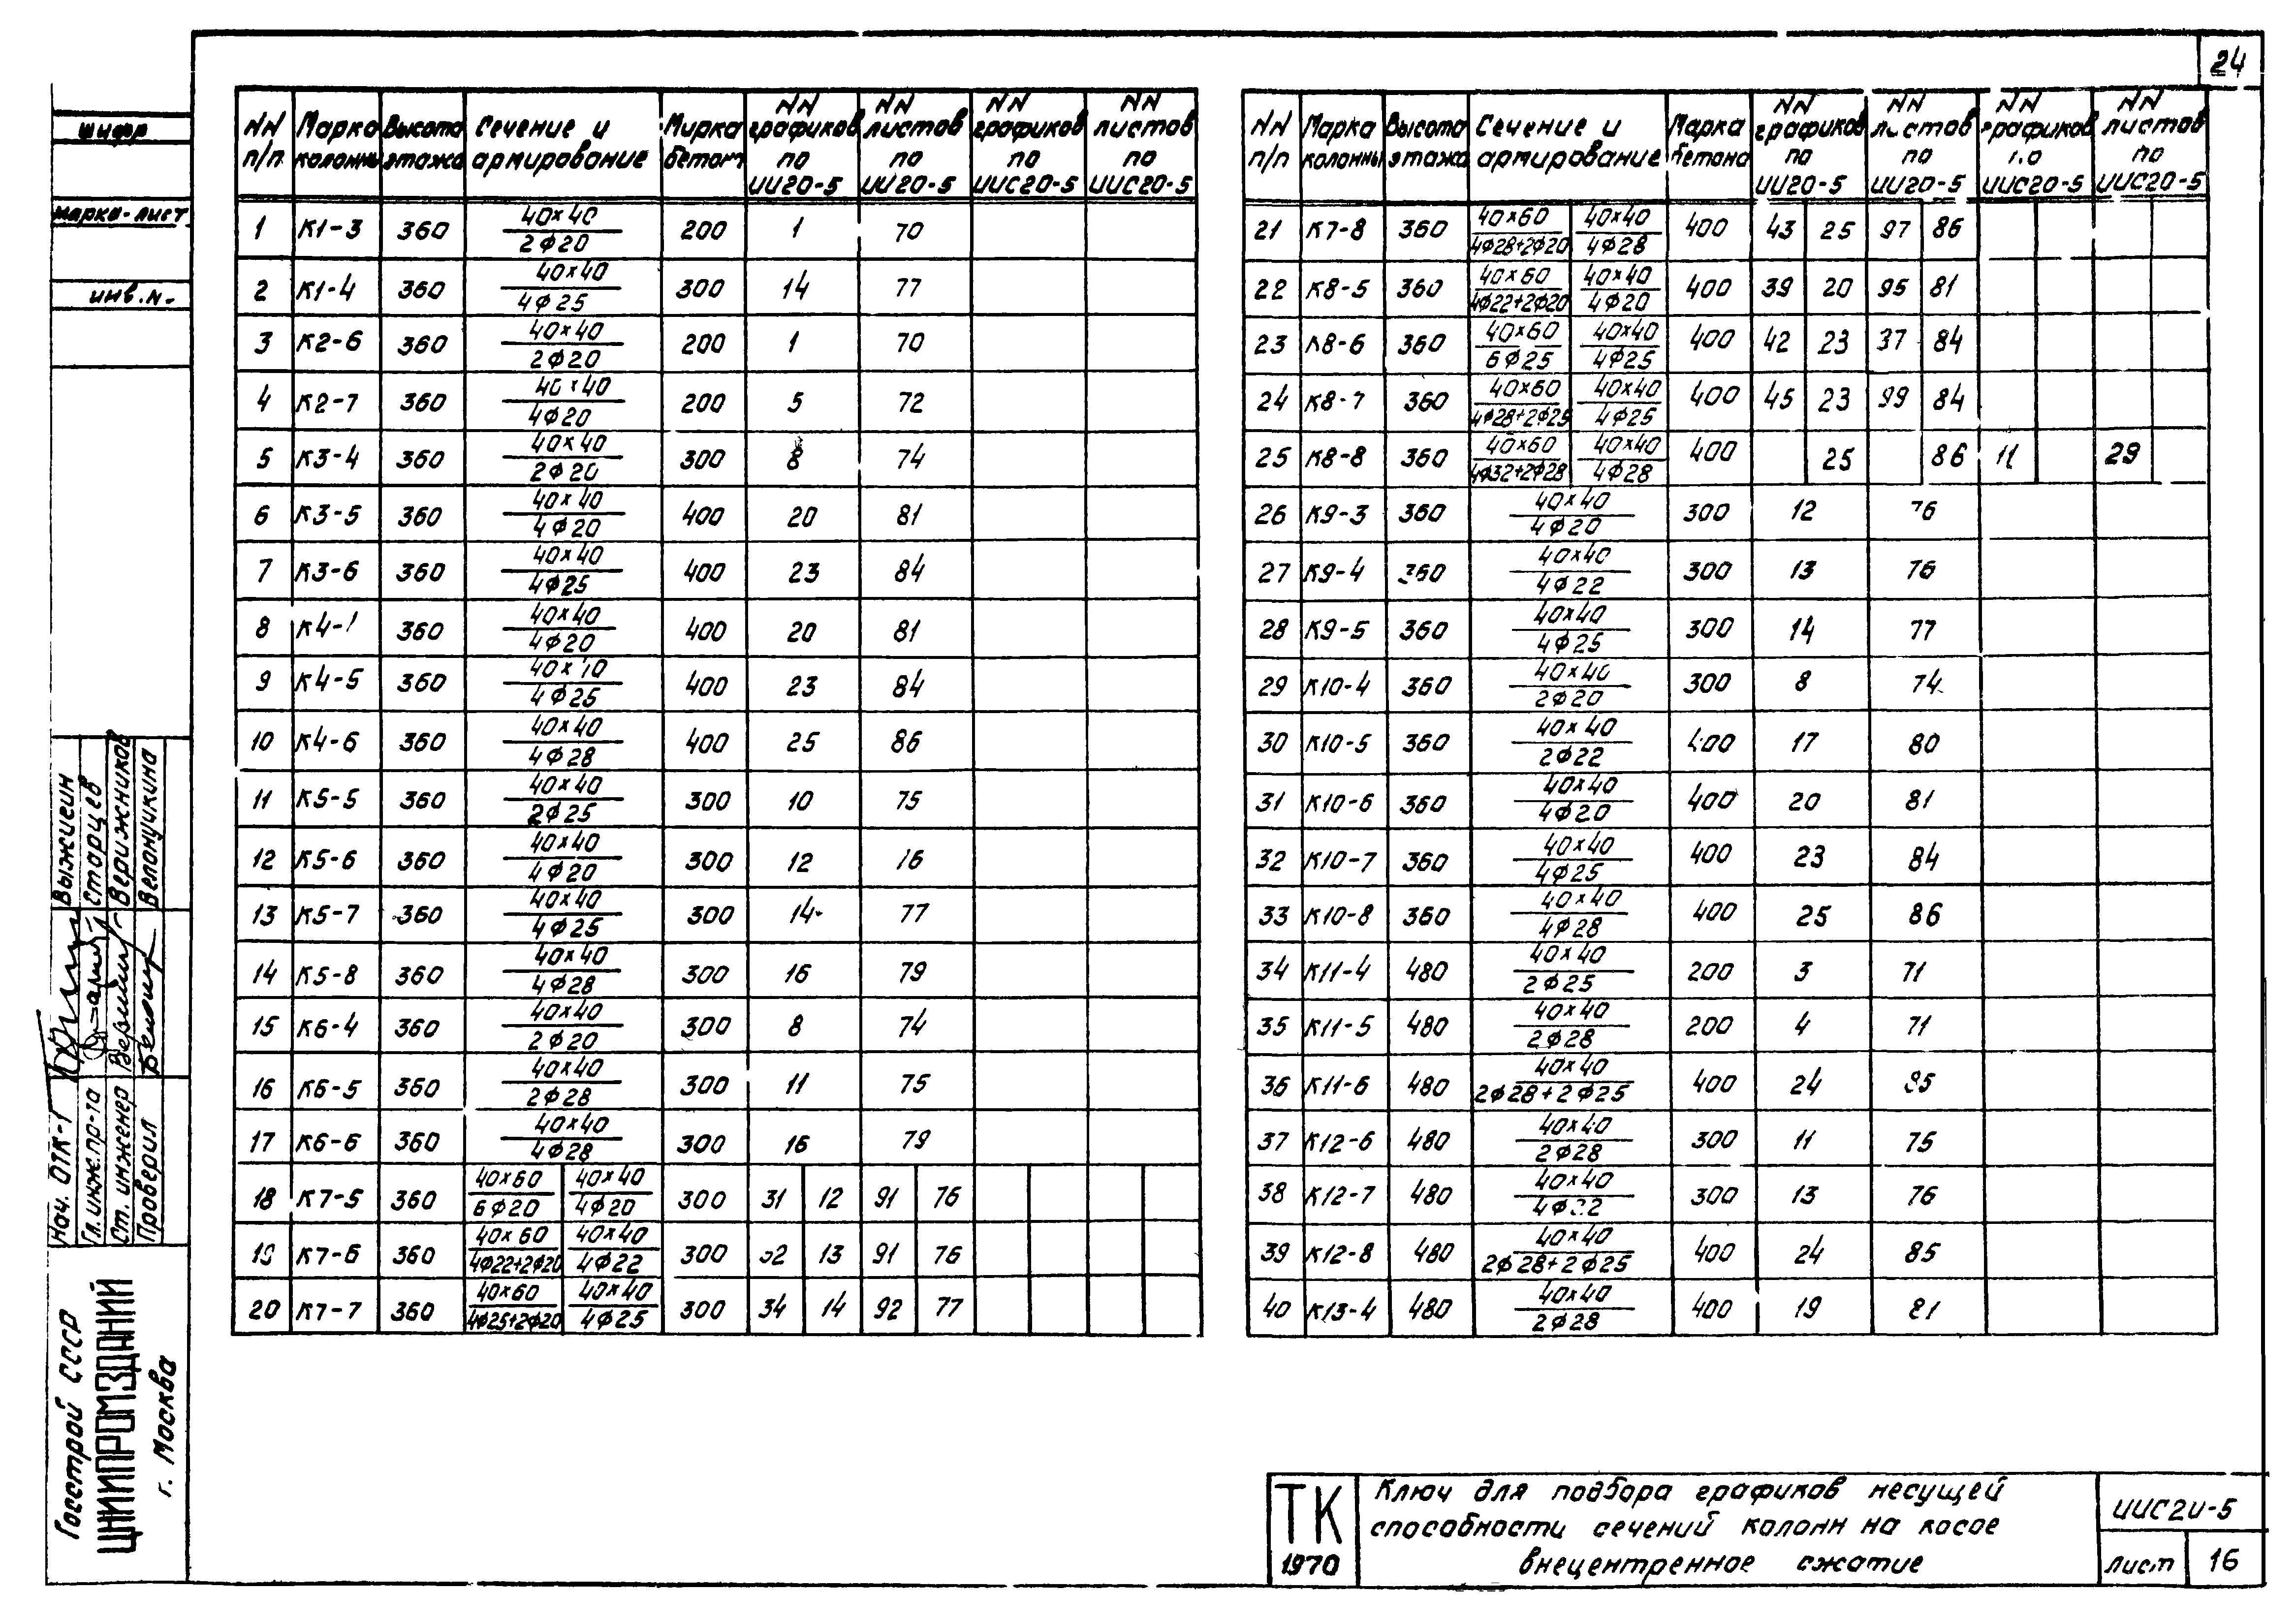 24
шифр
марка-лист
инв.н.
Выжигин
Старцев
Верижников
Белонучкина
Нач. ОТК-1
Гл.инж.пр-та
Ст. инженер
Проверил
Госстрой СССР
ЦНИИПРОМЗДАНИЙ
г. Москва
NN п/п | Марка колонны | Высота этажа | Сечение и армирование | Марка бетона | NN графиков по ИИ20-5 | NN листов по ИИ20-5 | NN графиков по ИИС20-5 | NN листов по ИИС20-5
1 К1-3 360 40×40 / 2ф20 200 1 70
2 К1-4 360 40×40 / 4ф25 300 14 77
3 К2-6 360 40×40 / 2ф20 200 1 70
4 К2-7 360 40×40 / 4ф20 200 5 72
5 К3-4 360 40×40 / 2ф20 300 8 74
6 К3-5 360 40×40 / 4ф20 400 20 81
7 К3-6 360 40×40 / 4ф25 400 23 84
8 К4-1 360 40×40 / 4ф20 400 20 81
9 К4-5 360 40×40 / 4ф25 400 23 84
10 К4-6 360 40×40 / 4ф28 400 25 86
11 К5-5 360 40×40 / 2ф25 300 10 75
12 К5-6 360 40×40 / 4ф20 300 12 76
13 К5-7 360 40×40 / 4ф25 300 14 77
14 К5-8 360 40×40 / 4ф28 300 16 79
15 К6-4 360 40×40 / 2ф20 300 8 74
16 К6-5 360 40×40 / 2ф28 300 11 75
17 К6-6 360 40×40 / 4ф28 300 16 79
18 К7-5 360 40×60 / 6ф20 40×40 / 4ф20 300 31 12 91 76
19 К7-6 360 40×60 / 4ф22+2ф20 40×40 / 4ф22 300 32 13 91 76
20 К7-7 360 40×60 / 4ф25+2ф20 40×40 / 4ф25 300 34 14 92 77
NN п/п | Марка колонны | Высота этажа | Сечение и армирование | Марка бетона | NN графиков по ИИ20-5 | NN листов по ИИ20-5 | NN графиков по ИИС20-5 | NN листов по ИИС20-5
21 К7-8 360 40×60 / 4ф28+2ф20 40×40 / 4ф28 400 43 25 97 86
22 К8-5 360 40×60 / 4ф22+2ф20 40×40 / 4ф20 400 39 20 95 81
23 К8-6 360 40×60 / 6ф25 40×40 / 4ф25 400 42 23 37 84
24 К8-7 360 40×60 / 4ф28+2ф25 40×40 / 4ф25 400 45 23 99 84
25 К8-8 360 40×60 / 4ф32+2ф28 40×40 / 4ф28 400 25 86 11 29
26 К9-3 360 40×40 / 4ф20 300 12 76
27 К9-4 360 40×40 / 4ф22 300 13 76
28 К9-5 360 40×40 / 4ф25 300 14 77
29 К10-4 360 40×40 / 2ф20 300 8 74
30 К10-5 360 40×40 / 2ф22 400 17 80
31 К10-6 360 40×40 / 4ф20 400 20 81
32 К10-7 360 40×40 / 4ф25 400 23 84
33 К10-8 360 40×40 / 4ф28 400 25 86
34 К11-4 480 40×40 / 2ф25 200 3 71
35 К11-5 480 40×40 / 2ф28 200 4 71
36 К11-6 480 40×40 / 2ф28+2ф25 400 24 85
37 К12-6 480 40×40 / 2ф28 300 11 75
38 К12-7 480 40×40 / 4ф22 300 13 76
39 К12-8 480 40×40 / 2ф28+2ф25 400 24 85
40 К13-4 480 40×40 / 2ф28 400 19 81
ТК
1970
Ключ для подбора графиков несущей
способности сечений колонн на косое
внецентренное сжатие
ИИС20-5
лист 16